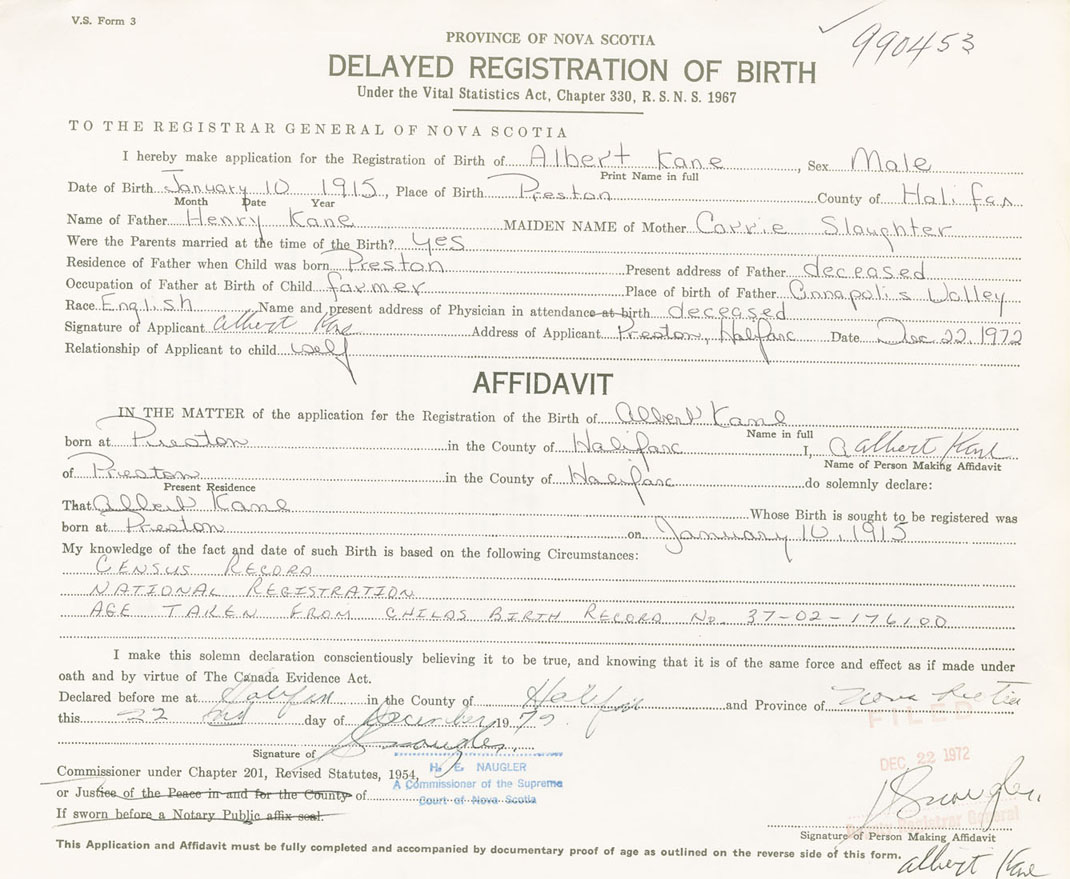 V.S. Form 3
990453
PROVINCE OF NOVA SCOTIA
DELAYED REGISTRATION OF BIRTH
Under the Vital Statistics Act, Chapter 330, R. S. N. S. 1967
TO THE REGISTRAR GENERAL OF NOVA SCOTIA
I hereby make application for the Registration of Birth of Albert Kane, Sex Male
Print Name in full
Date of Birth January 10 1915, Place of Birth Preston County of Halifax
Month Date Year
Name of Father Henry Kane MAIDEN NAME of Mother Carrie Slaughter
Were the Parents married at the time of the Birth? yes
Residence of Father when Child was born Preston Present address of Father deceased
Occupation of Father at Birth of Child farmer Place of birth of Father Annapolis Valley
Race English Name and present address of Physician in attendance at birth deceased
Signature of Applicant Albert Kane Address of Applicant Preston, Halifax Date Dec 22, 1972
Relationship of Applicant to child self
AFFIDAVIT
IN THE MATTER of the application for the Registration of the Birth of Albert Kane
Name in full
born at Preston in the County of Halifax I, Albert Kane
Name of Person Making Affidavit
of Preston in the County of Halifax do solemnly declare:
Present Residence
That Albert Kane Whose Birth is sought to be registered was
born at Preston on January 10, 1915
My knowledge of the fact and date of such Birth is based on the following Circumstances:
CENSUS RECORD
NATIONAL REGISTRATION
AGE TAKEN FROM CHILDS BIRTH RECORD No. 37-02-176100
I make this solemn declaration conscientiously believing it to be true, and knowing that it is of the same force and effect as if made under
oath and by virtue of The Canada Evidence Act.
Declared before me at Halifax in the County of Halifax and Province of Nova Scotia
this 22nd day of December 1972.
FILED
DEC 22 1972
Signature of
H. E. NAUGLER
A Commissioner of the Supreme
Court of Nova Scotia
Commissioner under Chapter 201, Revised Statutes, 1954,
or Justice of the Peace in and for the County of
If sworn before a Notary Public affix seal.
Registrar General
Signature of Person Making Affidavit
This Application and Affidavit must be fully completed and accompanied by documentary proof of age as outlined on the reverse side of this form.
Albert Kane